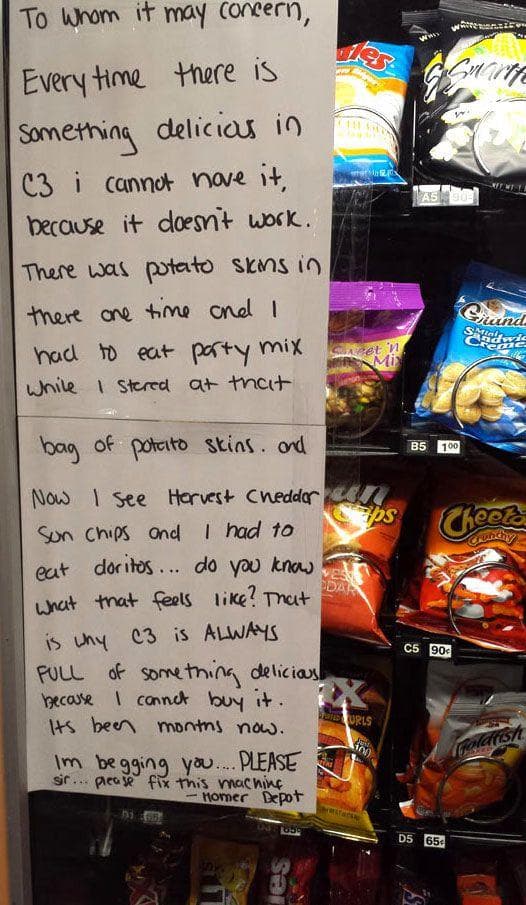 To Whom it may concern,
Every time there is
something delicios in
C3 i cannot have it,
because it doesn't work.
There was potato skins in
there one time and I
had to eat party mix
while I stared at that
bag of potato skins. and
Now I see Harvest Cheddar
Sun Chips and I had to
eat doritos... do you know
what that feels like? That
is why C3 is ALWAYS
FULL of something delicious
because I cannot buy it.
Its been months now.
Im begging you.... PLEASE
sir... please fix this machine
- Homer Depot
Smartf
A5 90¢
Sweet 'n
Mix
Grand
Mini
Sandwich
Cremes
B5 1 00
un
Chips
VES
DAR
Cheeto
Crunchy
C5 90¢
X
CURLS
Goldfish
D5 65¢